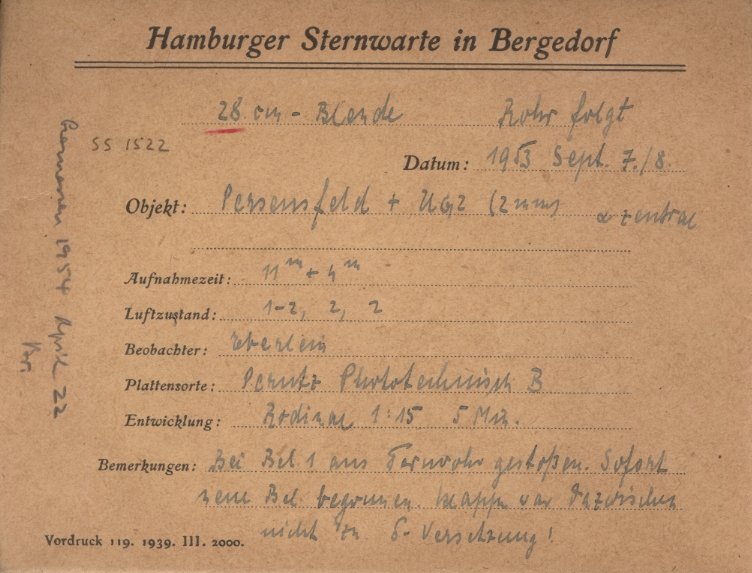 Hamburger Sternwarte in Bergedorf
28 cm - Blende Rohr folgt
SS 1522
Datum: 1953 Sept. 7./8.
Objekt: Perseusfeld + UG2 (2mm) α zentral
Aufnahmezeit: 11ᵐ + 4ᵐ
Luftzustand: 1-2, 2, 2
Beobachter: Eberlein
Plattensorte: Perutz Phototechnisch B
Entwicklung: Rodinal 1:15 5 Min.
Bemerkungen: Bei Bel 1 ans Fernrohr gestoßen. Sofort
neue Bel. begonnen. Klappe war dazwischen
nicht zu δ-Versetzung!
Vordruck 119. 1939. III. 2000.
1954 April 22